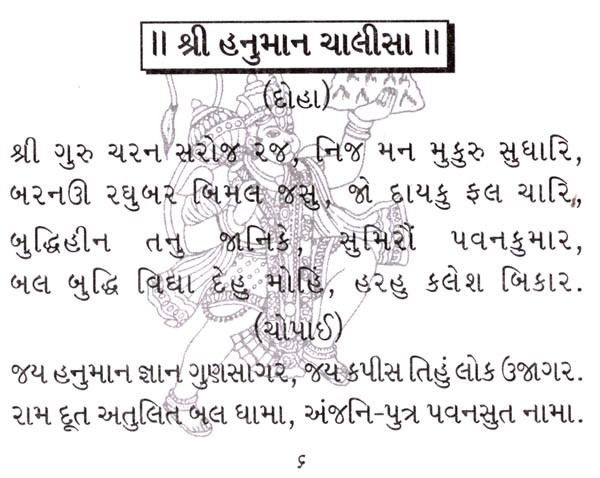 ॥ શ્રી હનુમાન ચાલીસા ॥
(દોહા)
શ્રી ગુરુ ચરન સરોજ રજ, નિજ મન મુકુરુ સુધારિ,
બરનઊ રઘુબર બિમલ જસુ, જો દાયકુ ફલ ચારિ,
બુદ્ધિહીન તનુ જાનિકે, સુમિરૌં પવનકુમાર,
બલ બુદ્ધિ વિદ્યા દેહુ મોહિ, હરહુ કલેશ બિકાર.
(ચોપાઈ)
જય હનુમાન જ્ઞાન ગુણસાગર, જય કપીસ તિહું લોક ઉજાગર.
રામ દૂત અતુલિત બલ ધામા, અંજનિ-પુત્ર પવનસુત નામા.
૬